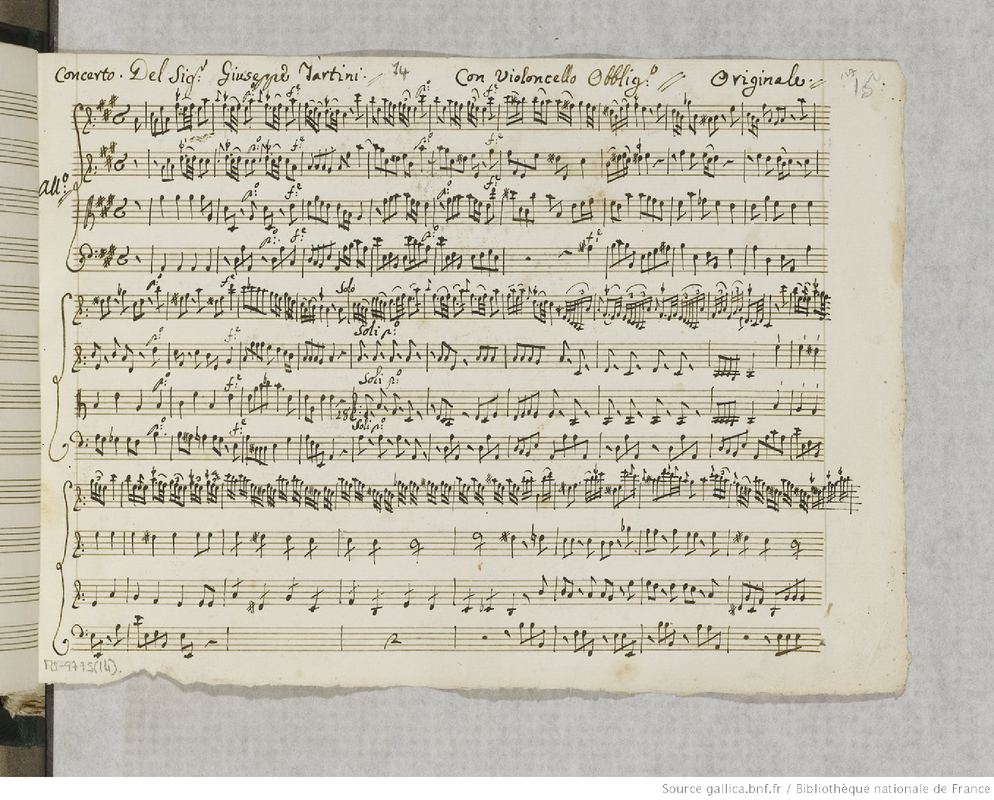 Concerto. Del Sig.r Giuseppe Tartini. 14 Con Violoncello Obblig.o Originale. 15
p.o f.e p.o f.e
p.o f.e p.o f.e
All.o p.o f.e p.o f.e
p.o f.e p.o f.e
p.o f.e Solo
Soli p.o
p.o f.e
Soli p.o
p.o f.e
Soli p.o
p.o f.e
MS-9795(14).
Source gallica.bnf.fr / Bibliothèque nationale de France